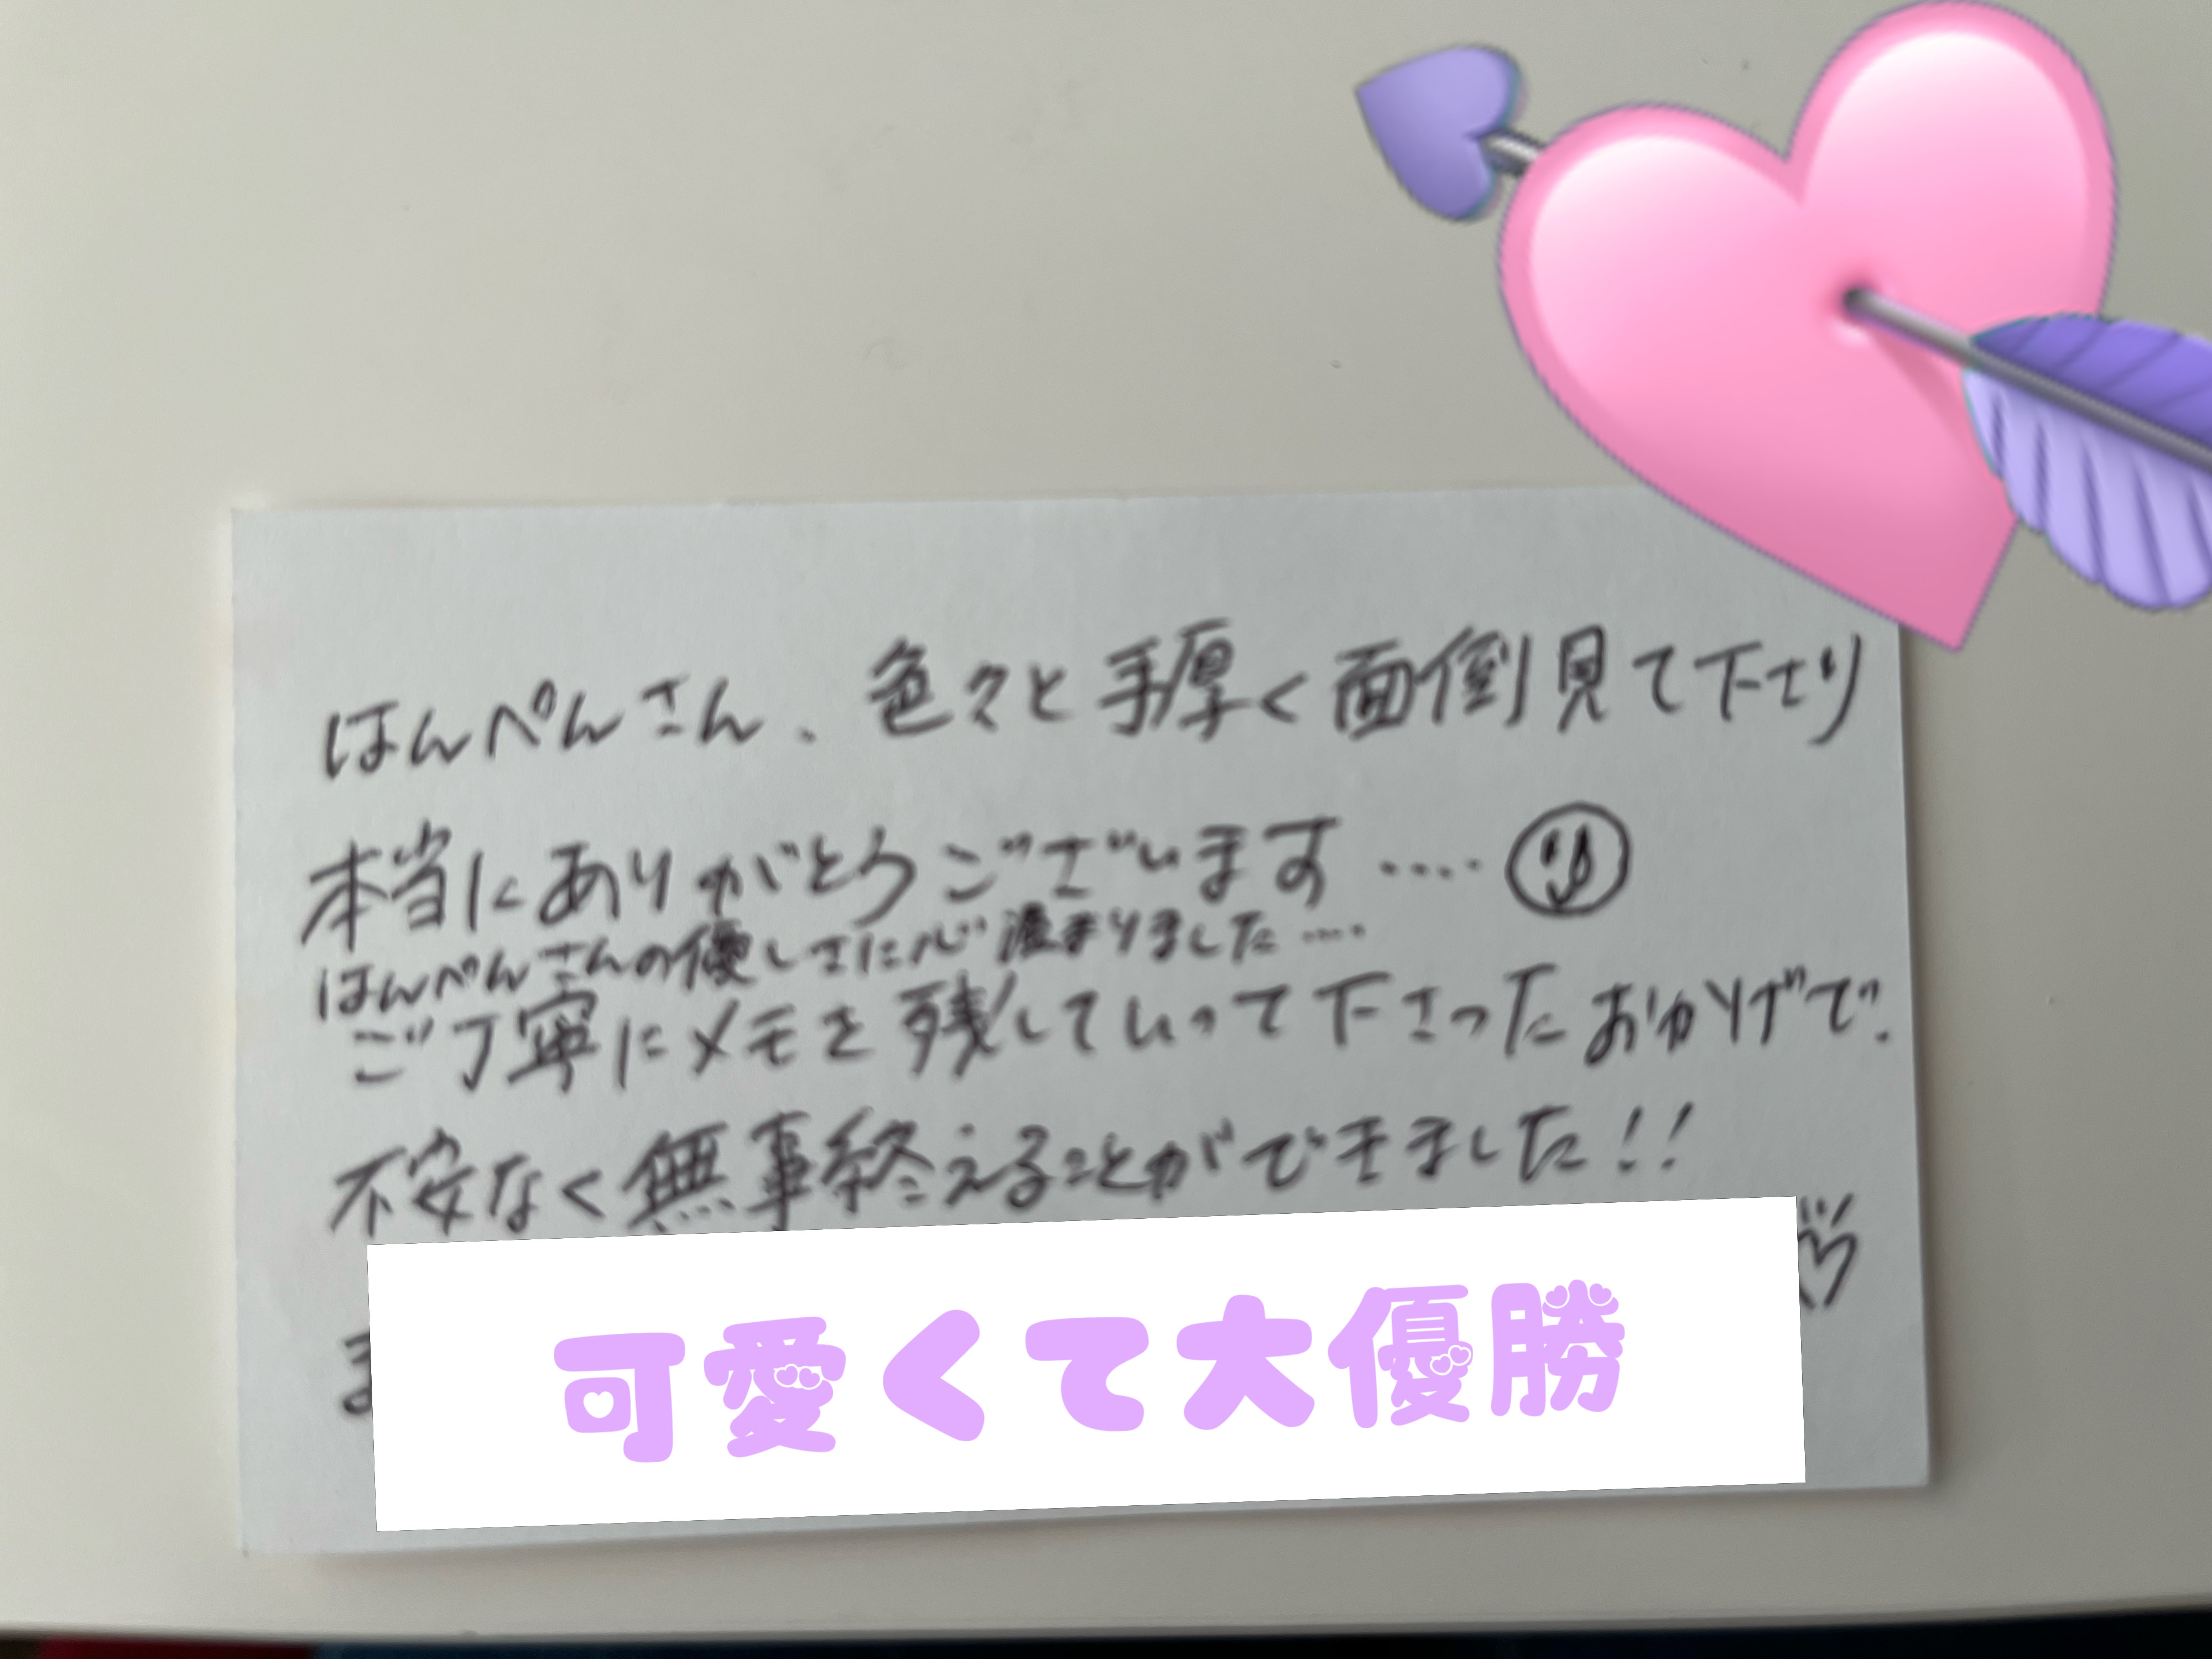 はんぺんさん、色々と手厚く面倒見て下さり
本当にありがとうございます‥‥
はんぺんさんの優しさに心温まりました‥‥
ご丁寧にメモを残していって下さったおかげで、
不安なく無事終えることができました!!
ま
可愛くて大優勝